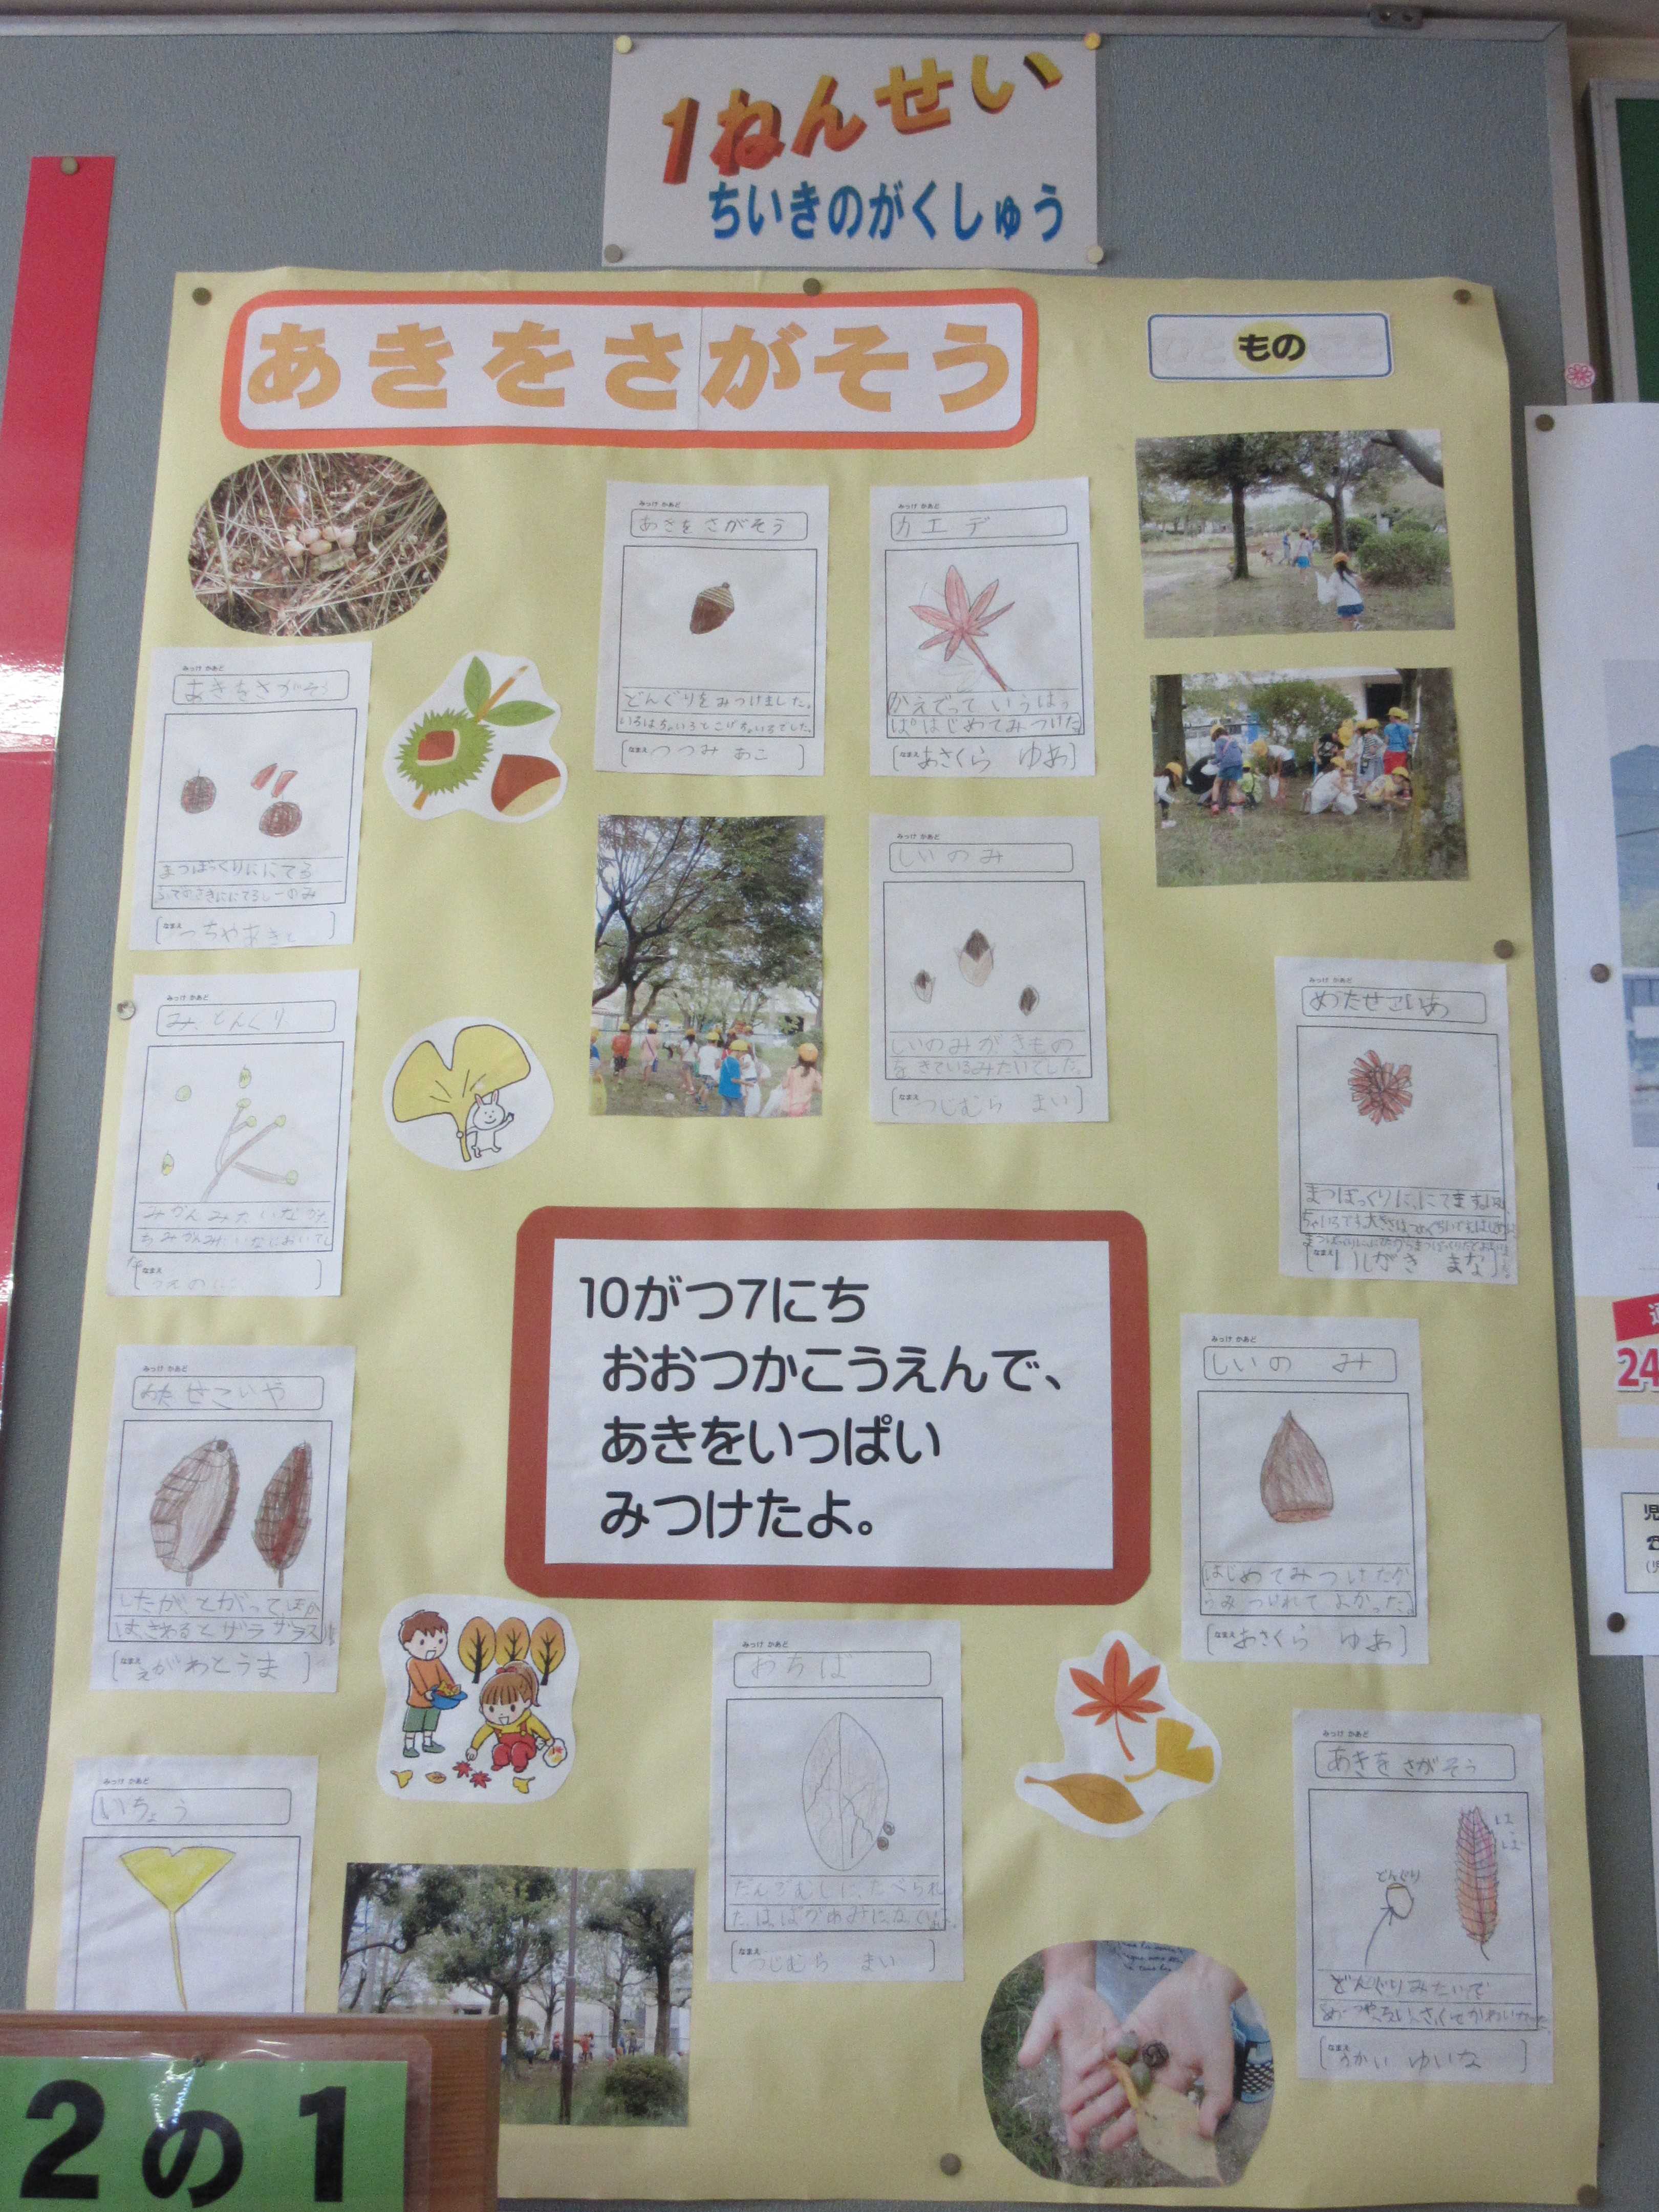 1ねんせい
ちいきのがくしゅう
あきをさがそう
もの
みっけ かあど
あきをさがそう
どんぐりをみつけました。
いろはちゃいろとこげちゃいろでした。
なまえ つつみ あこ
みっけ かあど
カエデ
かえでって いうはっ
ぱはじめてみつけた
なまえ あさくら ゆあ
みっけ かあど
あきをさがそう
まつぼっくりににてる
さきににてるしーのみ
なまえ つちやあきと
みっけ かあど
しいのみ
しいのみが きもの
を きているみたいでした。
なまえ つじむら まい
みっけ かあど
み、どんぐり
みかんみたいな
なまえ うえの
みっけ かあど
めたせこいあ
まつぼっくりに、にてますね
ちゃいろです。大きさは
なまえ いしがき まな
10がつ7にち
おおつかこうえんで、
あきをいっぱい
みつけたよ。
みっけ かあど
めたせこいや
したが、とがって
は、さわるとザラザラ
なまえ えがわとうま
みっけ かあど
しいの み
はじめてみつけたか
らみつけれてよかった。
なまえ あさくら ゆあ
みっけ かあど
おちば
だんごむしに、たべられ
た、はっぱがあみになって
なまえ つじむら まい
みっけ かあど
いちょう
みっけ かあど
あきをさがそう
どんぐり
どんぐりみたいで
かわいかった
なまえ うかい ゆいな
2の1
24